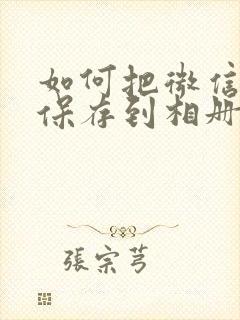 如何把微信
保存到相册
張宗芎